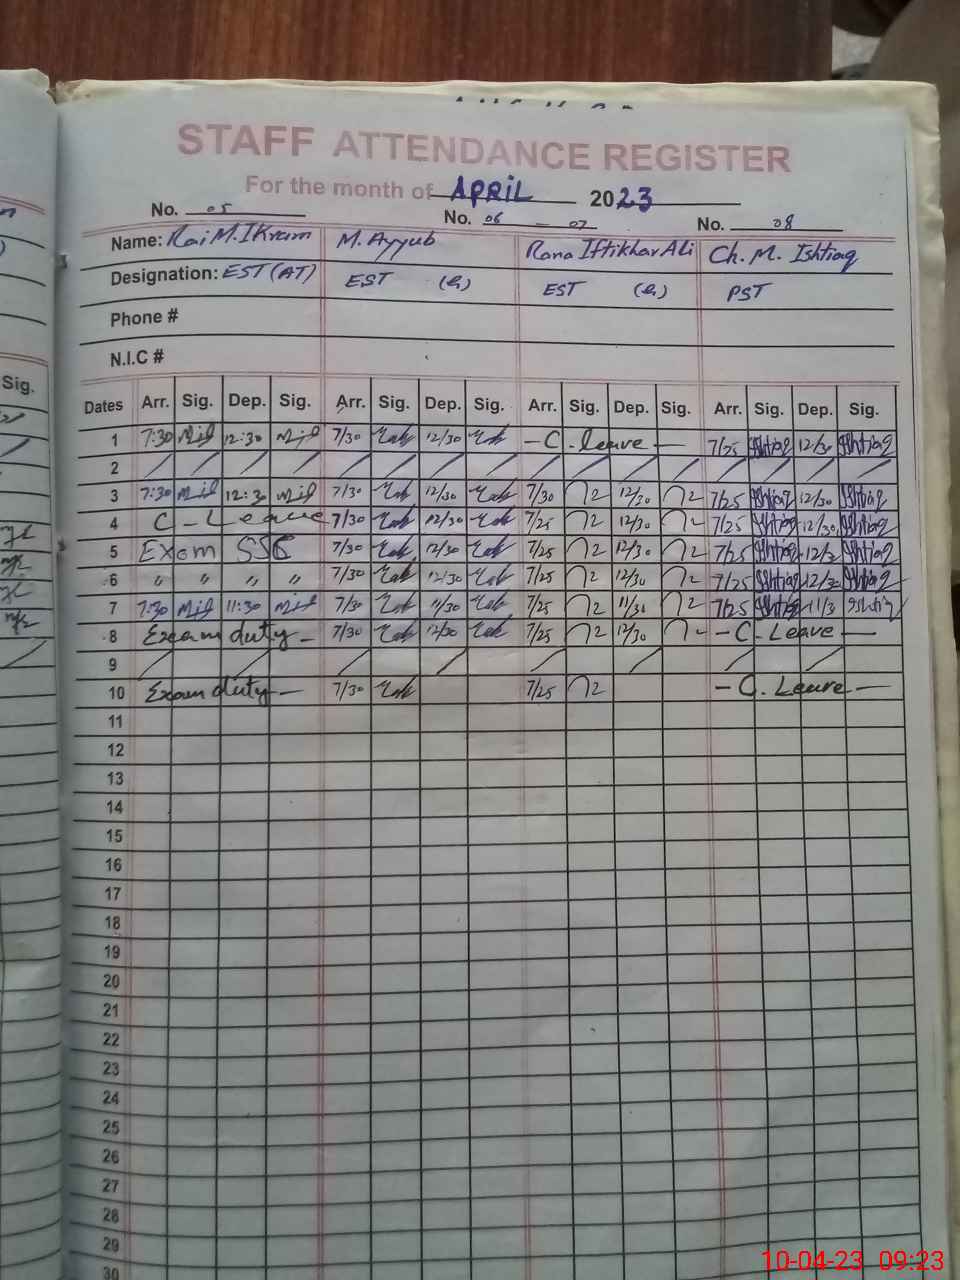 STAFF ATTENDANCE REGISTER
For the month of APRIL 2023
No. 05 No. 06 - 07 No. 08
Name: Rai M. IKram M. Ayyub Rana Iftikhar Ali Ch. M. Ishtiaq
Designation: EST (AT) EST EST PST
Phone #
N.I.C #
Sig.
Dates Arr. Sig. Dep. Sig. Arr. Sig. Dep. Sig. Arr. Sig. Dep. Sig. Arr. Sig. Dep. Sig.
1 7:30 12:30 7/30 12/30 - C. leave - 7/25 Ishtiaq 12/30 Ishtiaq
2
3 7:30 12:30 7/30 12/30 7/30 12/30 7/25 Ishtiaq 12/30 Ishtiaq
4 C - Leave 7/30 12/30 7/25 12/30 7/25 Ishtiaq 12/30 Ishtiaq
5 Exam SSC 7/30 12/30 7/25 12/30 7/25 Ishtiaq 12/3 Ishtiaq
6 " " " " 7/30 12/30 7/25 12/30 7/25 Ishtiaq 12/30 Ishtiaq
7 7:30 11:30 7/30 11/30 7/25 11/30 7/25 Ishtiaq 11/3 Ishtiaq
8 Exam duty - 7/30 12/30 7/25 12/30 - C. Leave -
9
10 Exam duty - 7/30 7/25 - C. Leave -
11
12
13
14
15
16
17
18
19
20
21
22
23
24
25
26
27
28
29
30
10-04-23 09:23